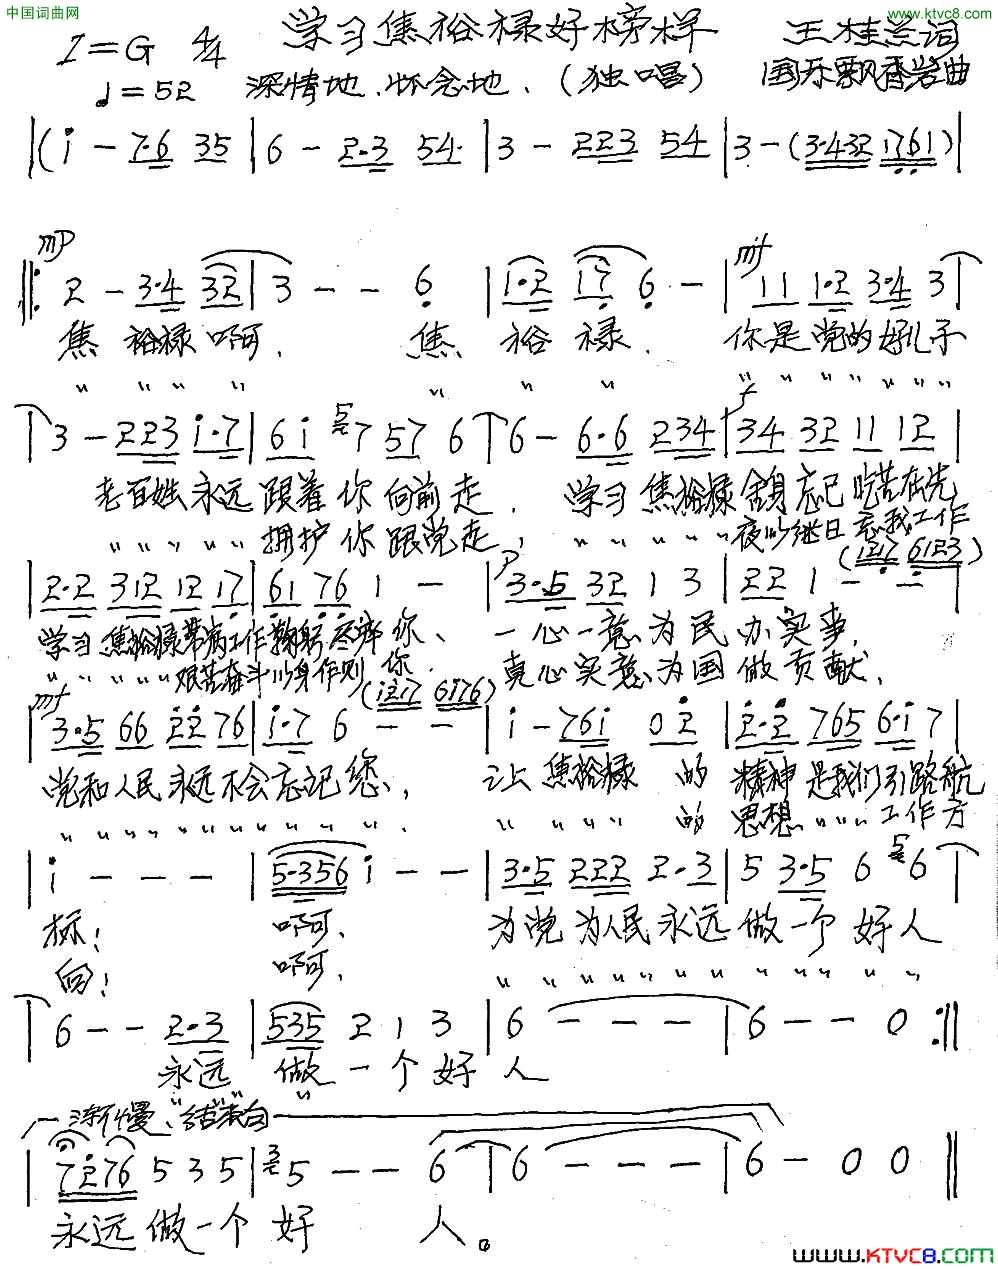 中国词曲网
www.ktvc8.com
学习焦裕禄好榜样 王桂兰词
1=G 4/4
♩=52 深情地、怀念地、(独唱) 国乐飘香岩曲
|(i - 7·6 35 | 6 - 2·3 54· | 3 - 223 54 | 3 - (3·432 1761)|
mp mf
||: 2 - 3·4 32 | 3 - - 6 | 1·2 17 6 - | 11 1·2 3·4 3 |
焦 裕禄 啊可、 焦、裕 禄、 你是党的好儿子
〃 〃 〃 〃 〃 〃 〃 〃 〃 〃 〃 〃 〃 〃
f
| 3 - 223 i·7 | 6i 5 7 57 6 | 6 - 6·6 234 | 34 32 11 12 |
老百姓永远 跟着你向前走、 学习 焦裕禄 舍身忘记吃苦在先
〃 〃 〃 〃 〃 拥护你跟党走, 〃 〃 〃 〃 〃 夜以继日忘我工作
(i217 6123)
| 2·2 312 12 17 | 61 76 1 - | p 3·5 32 1 3 | 22 1 - - |
学习焦裕禄带病工作鞠躬尽瘁你、 一心一意为民办实事,
〃 〃 〃 〃 〃 艰苦奋斗以身作则你、 真心实意为国做贡献、
mf (i217 6i76)
| 3·5 66 22 76 | i·7 6 - - | i - 76i 0 2 | 2·2 765 6·i 7 |
党和人民永远不会忘记您, 让 焦裕禄 的 精神是我们引路航
〃 〃 〃 〃 〃 〃 〃 〃 〃 〃、 〃 〃 〃 〃 的 思想 〃 〃 〃 工作方
| i - - - | 5·356 i - - | 3·5 222 2·3 | 5 3·5 6 5 6 |
标! 啊可、 为党为人民永远做一个好人
向! 啊可、 〃 〃 〃 〃 〃 〃 〃 〃 〃 〃 〃
| 6 - - 2·3 | 535 2 1 3 | 6 - - - | 6 - - 0 :||
永远 做一个好人
〃 〃 〃
渐慢、结束句
| 7276 5 3 5 | 3 5 - - 6 | 6 - - - | 6 - 0 0 ||
永远做一个好 人。
www.KTVC8.com